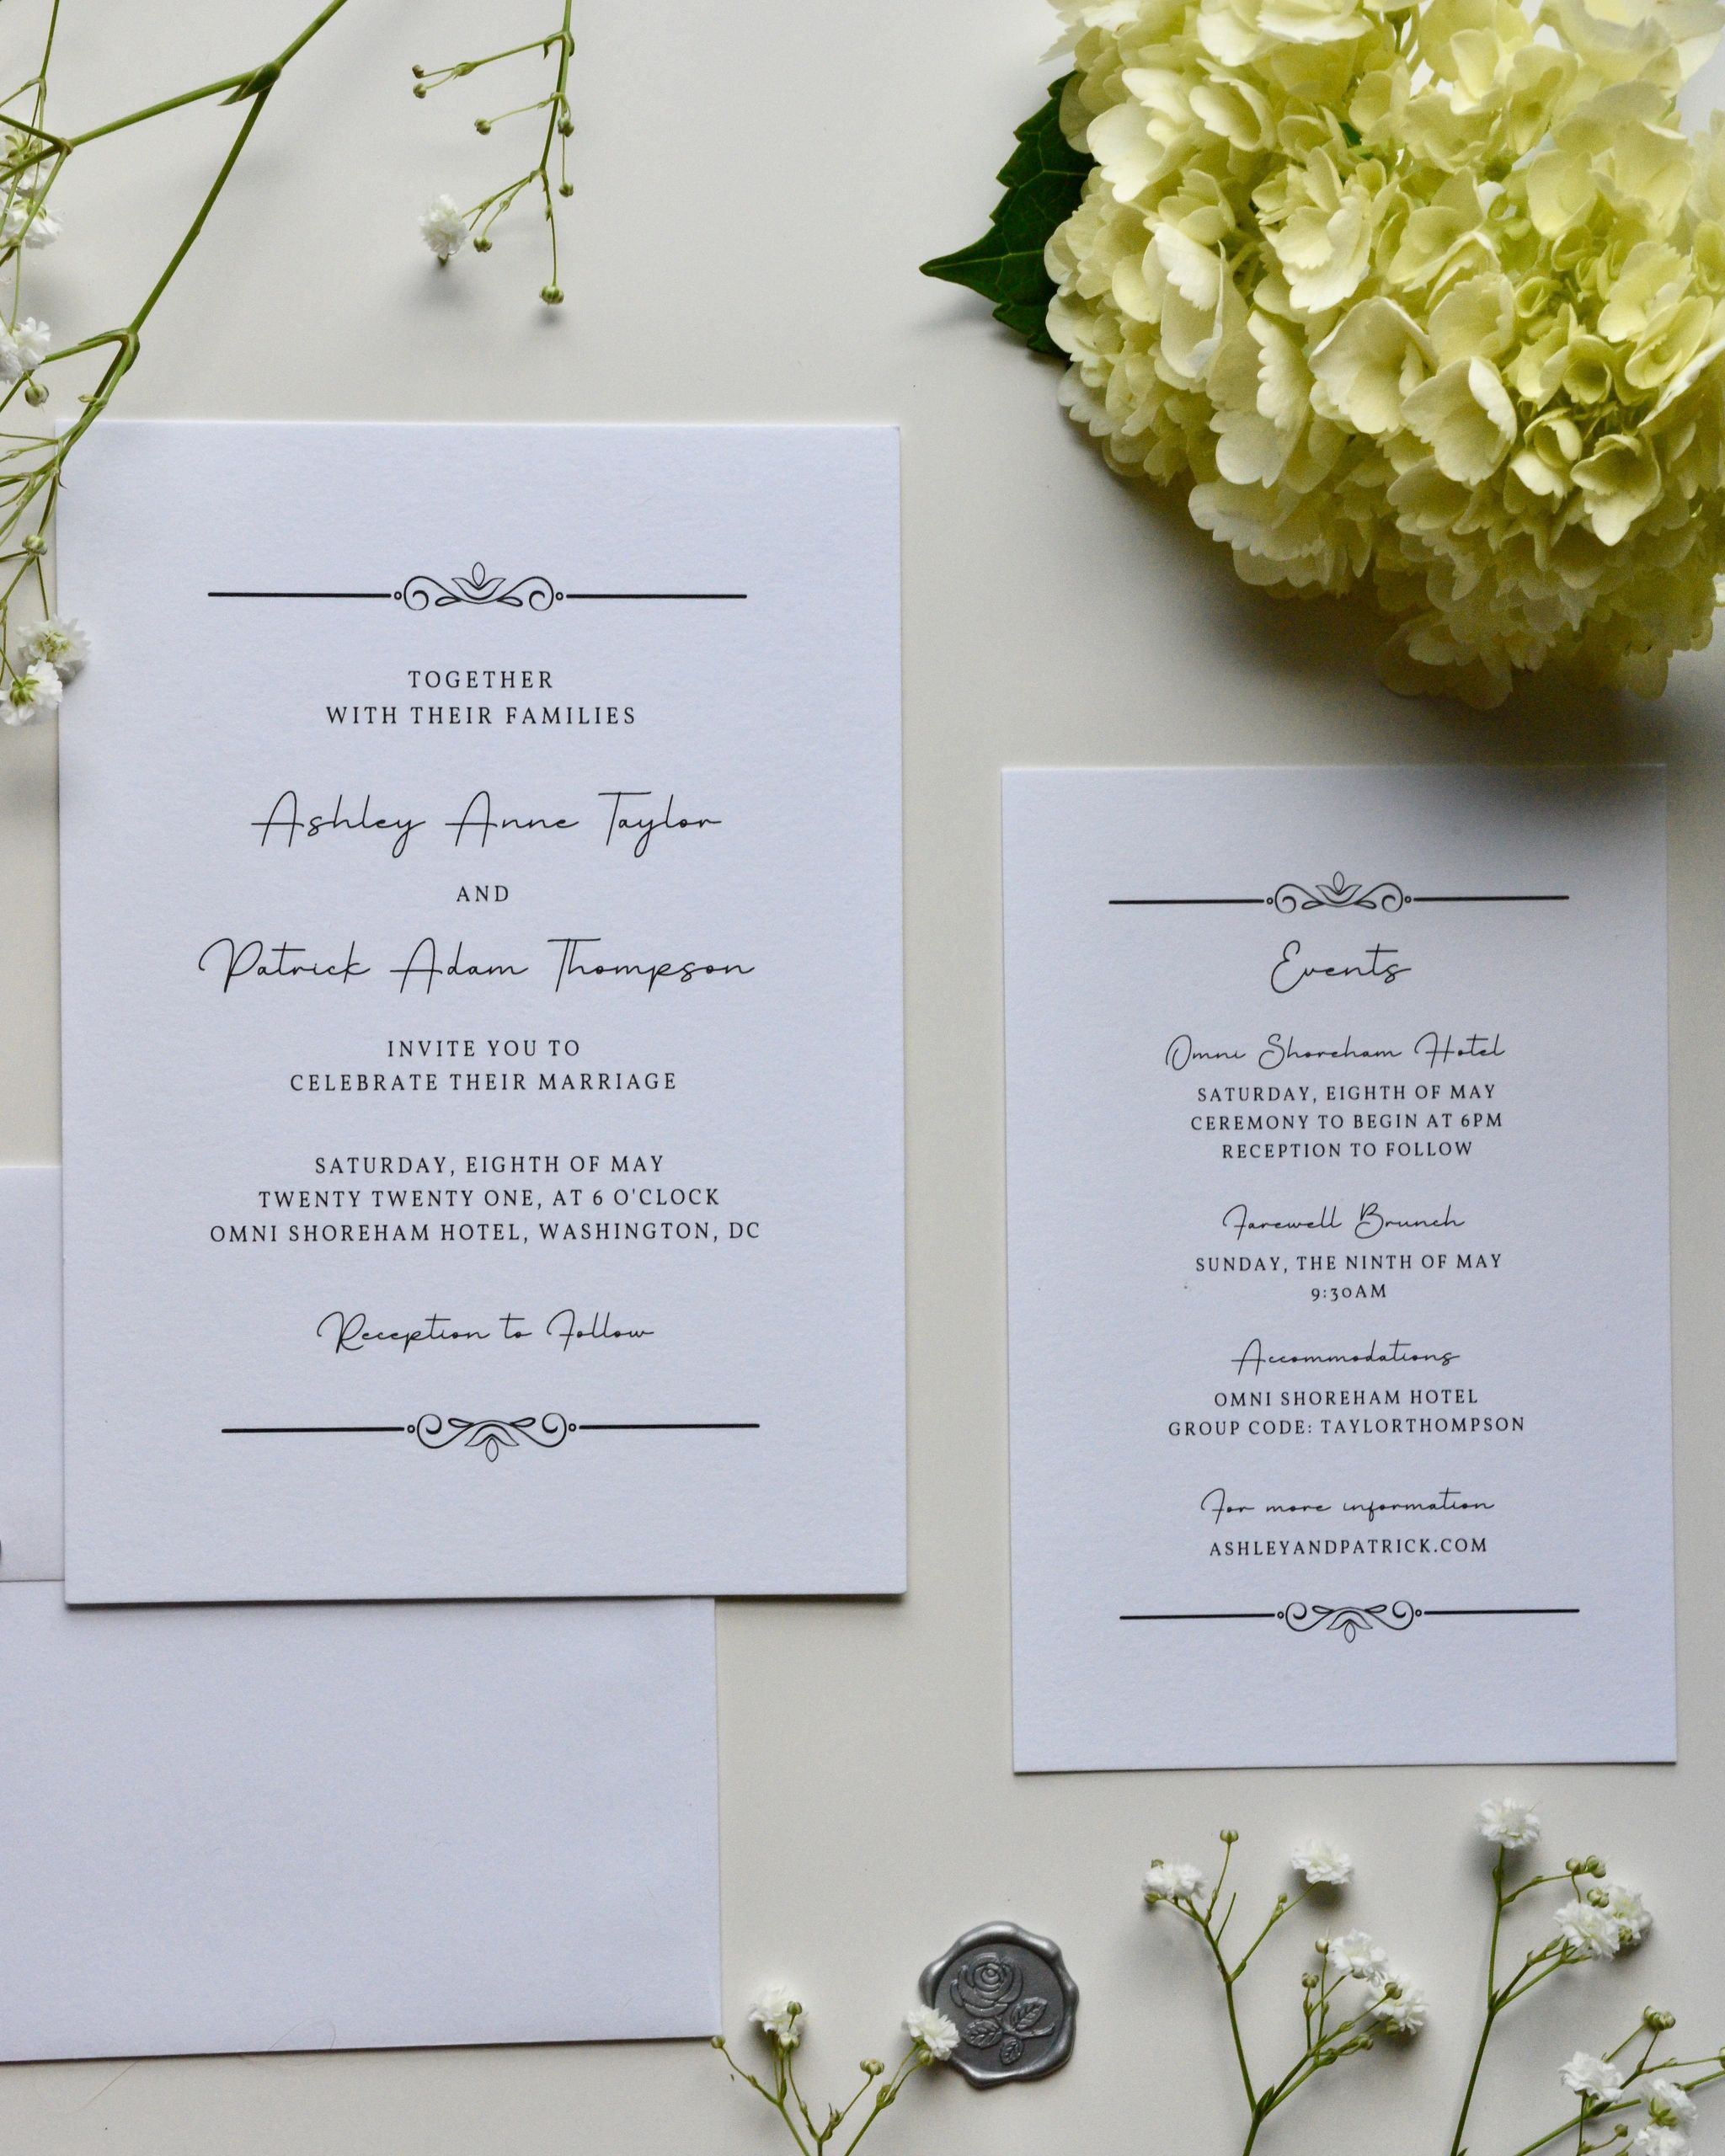 TOGETHER
WITH THEIR FAMILIES
Ashley Anne Taylor
AND
Patrick Adam Thompson
INVITE YOU TO
CELEBRATE THEIR MARRIAGE
SATURDAY, EIGHTH OF MAY
TWENTY TWENTY ONE, AT 6 O'CLOCK
OMNI SHOREHAM HOTEL, WASHINGTON, DC
Reception to Follow
Events
Omni Shoreham Hotel
SATURDAY, EIGHTH OF MAY
CEREMONY TO BEGIN AT 6PM
RECEPTION TO FOLLOW
Farewell Brunch
SUNDAY, THE NINTH OF MAY
9:30AM
Accommodations
OMNI SHOREHAM HOTEL
GROUP CODE: TAYLORTHOMPSON
For more information
ASHLEYANDPATRICK.COM